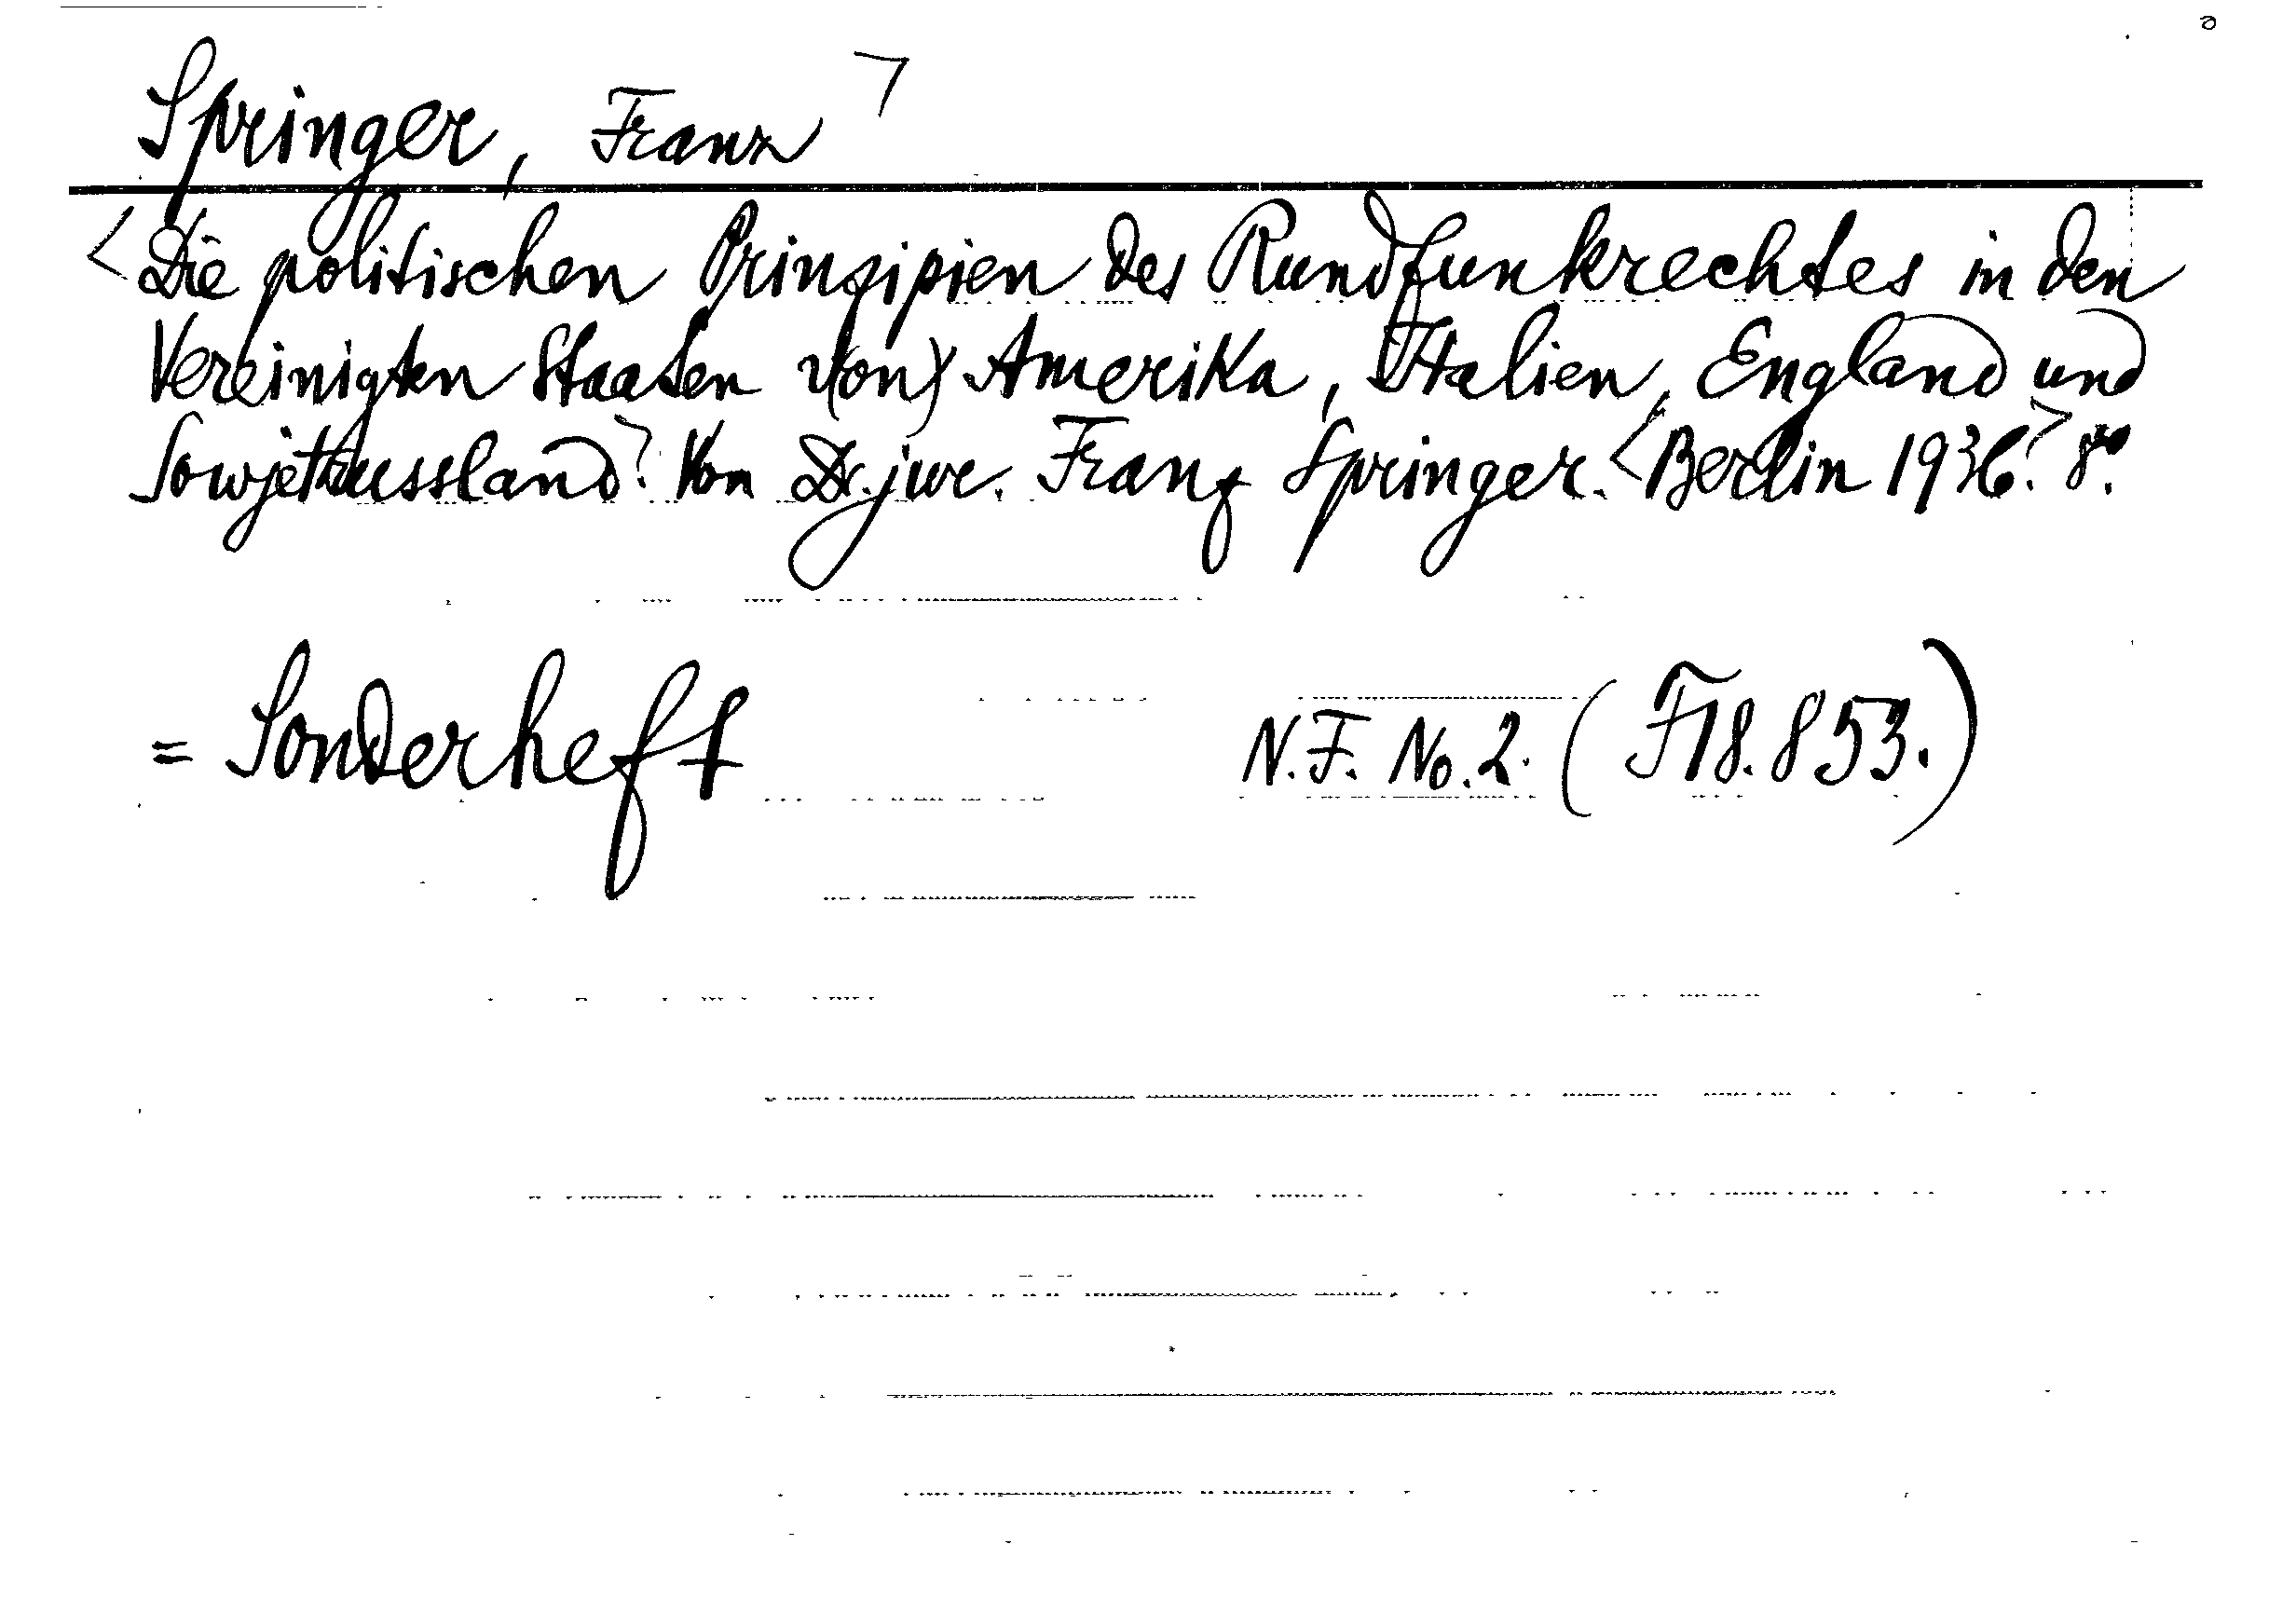 Springer, Franz ⌝
<Die politischen Prinzipien des Rundfunkrechtes in den
Vereinigten Staaten v(on) Amerika, Italien, England und
Sowjetrussland⌝. Von Dr. jur. Franz Springer. <Berlin 1936⌝. 8°.
= Sonderheft N.F. No. 2. (F 18.853.)